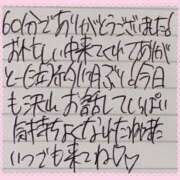 60分でありがとうございました!
お忙しい中来てくれてありが
と〜
も沢山お話していっぱい
気持ちよくなれたね
いつでも来てね♡♡